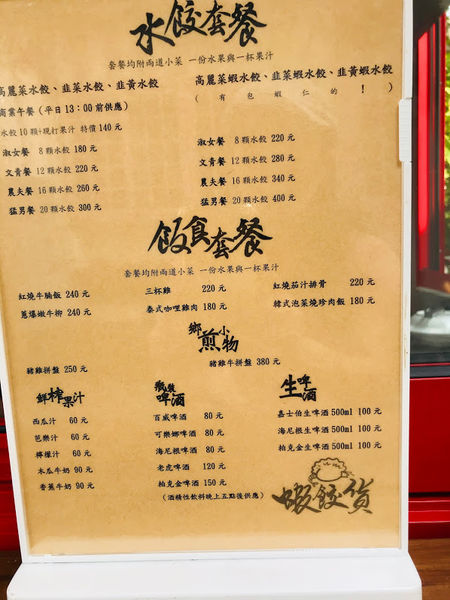 水餃套餐
套餐均附兩道小菜 一份水果與一杯果汁
高麗菜水餃、韭菜水餃、韭黃水餃
商業午餐（平日13：00前供應）
水餃10顆+現打果汁 特價140元
淑女餐 8顆水餃 180元
文青餐 12顆水餃 220元
農夫餐 16顆水餃 260元
猛男餐 20顆水餃 300元
高麗菜蝦水餃、韭菜蝦水餃、韭黃蝦水餃
（有包蝦仁的！）
淑女餐 8顆水餃 220元
文青餐 12顆水餃 280元
農夫餐 16顆水餃 340元
猛男餐 20顆水餃 400元
飯食套餐
套餐均附兩道小菜 一份水果與一杯果汁
紅燒牛腩飯 240元
蔥爆嫩牛柳 240元
三杯雞 220元
泰式咖哩雞肉 180元
紅燒茄汁排骨 220元
韓式泡菜燒珍肉飯 180元
鄉煎小物
豬雞拼盤 250元
豬雞牛拼盤 380元
鮮榨果汁
西瓜汁 60元
芭樂汁 60元
檸檬汁 60元
木瓜牛奶 90元
香蕉牛奶 90元
瓶裝啤酒
百威啤酒 80元
可樂娜啤酒 80元
海尼根啤酒 80元
老虎啤酒 120元
柏克金啤酒 150元
（酒精性飲料晚上五點後供應）
生啤酒
嘉士伯生啤酒500ml 100元
海尼根生啤酒500ml 100元
柏克金生啤酒500ml 100元
蝦餃货